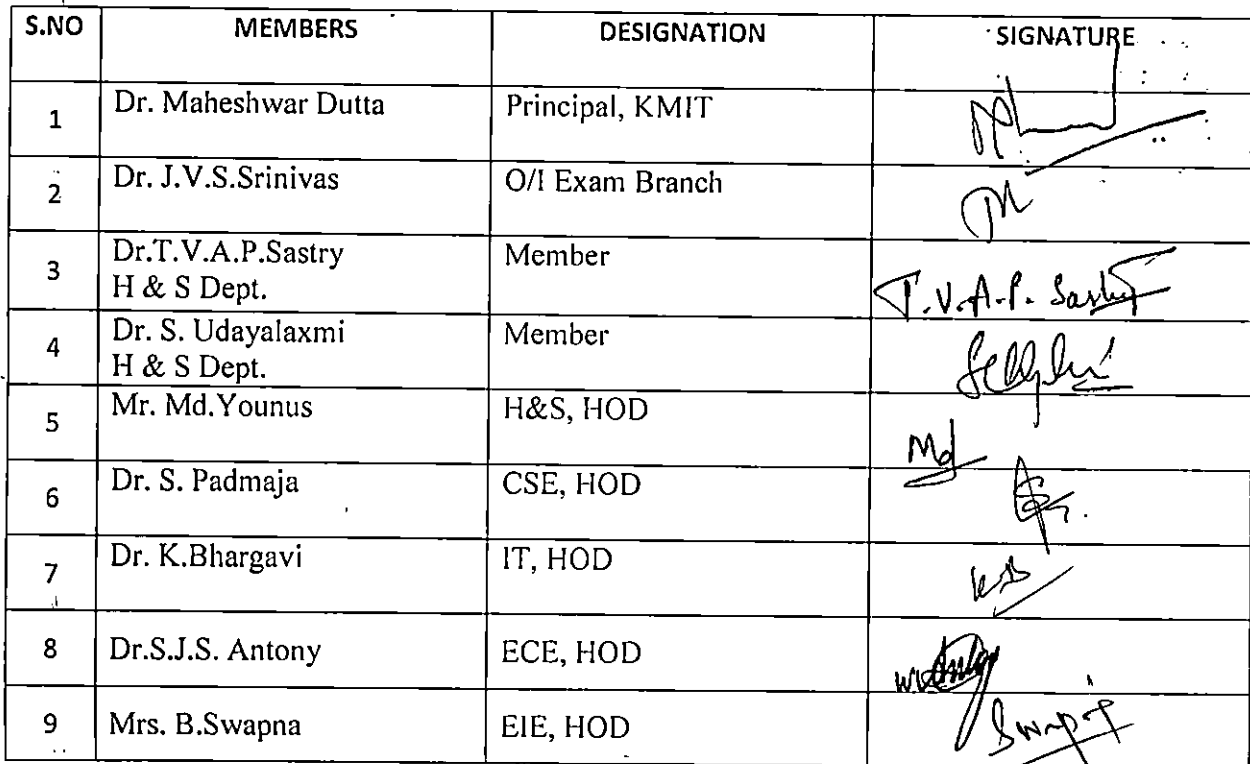 S.NO MEMBERS DESIGNATION SIGNATURE
1 Dr. Maheshwar Dutta Principal, KMIT
2 Dr. J.V.S.Srinivas O/I Exam Branch
3 Dr.T.V.A.P.Sastry Member T.V.A.P. Sastry
H & S Dept.
4 Dr. S. Udayalaxmi Member
H & S Dept.
5 Mr. Md.Younus H&S, HOD Md
6 Dr. S. Padmaja CSE, HOD
7 Dr. K.Bhargavi IT, HOD KB
8 Dr.S.J.S. Antony ECE, HOD
9 Mrs. B.Swapna EIE, HOD Swapna